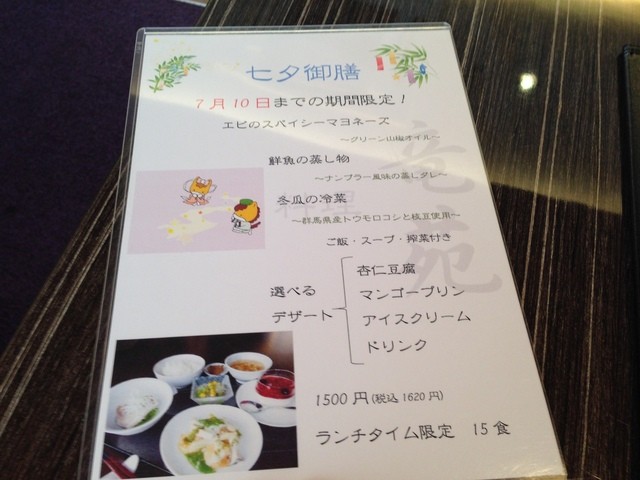 七夕御膳
7月10日までの期間限定！
エビのスパイシーマヨネーズ
～グリーン山椒オイル～
鮮魚の蒸し物
～ナンプラー風味の蒸しダレ～
冬瓜の冷菜
～群馬県産トウモロコシと枝豆使用～
ご飯・スープ・搾菜付き
選べる
デザート
杏仁豆腐
マンゴープリン
アイスクリーム
ドリンク
1500円(税込1620円)
ランチタイム限定 15食
料理
竜苑